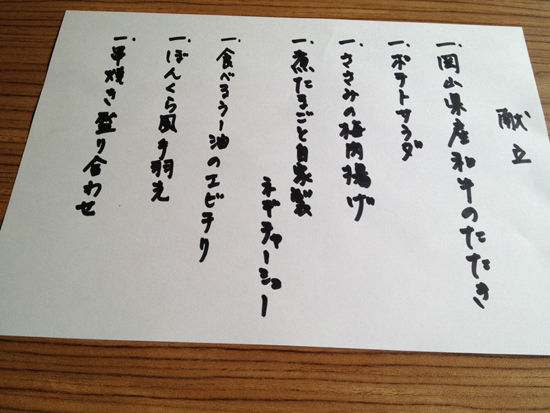 献立
一、岡山県産和牛のたたき
一、ポテトサラダ
一、ささみの梅肉揚げ
一、煮たまごと自家製
ネギチャーシュー
一、食べるラー油のエビチリ
一、ぼんくら風手羽先
一、串焼き盛り合わせ